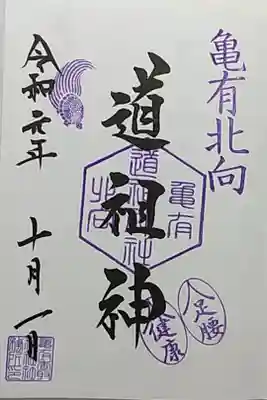 亀有北向
道祖神
令和元年
十月一日
亀有
北向
道祖神社
足腰
健康